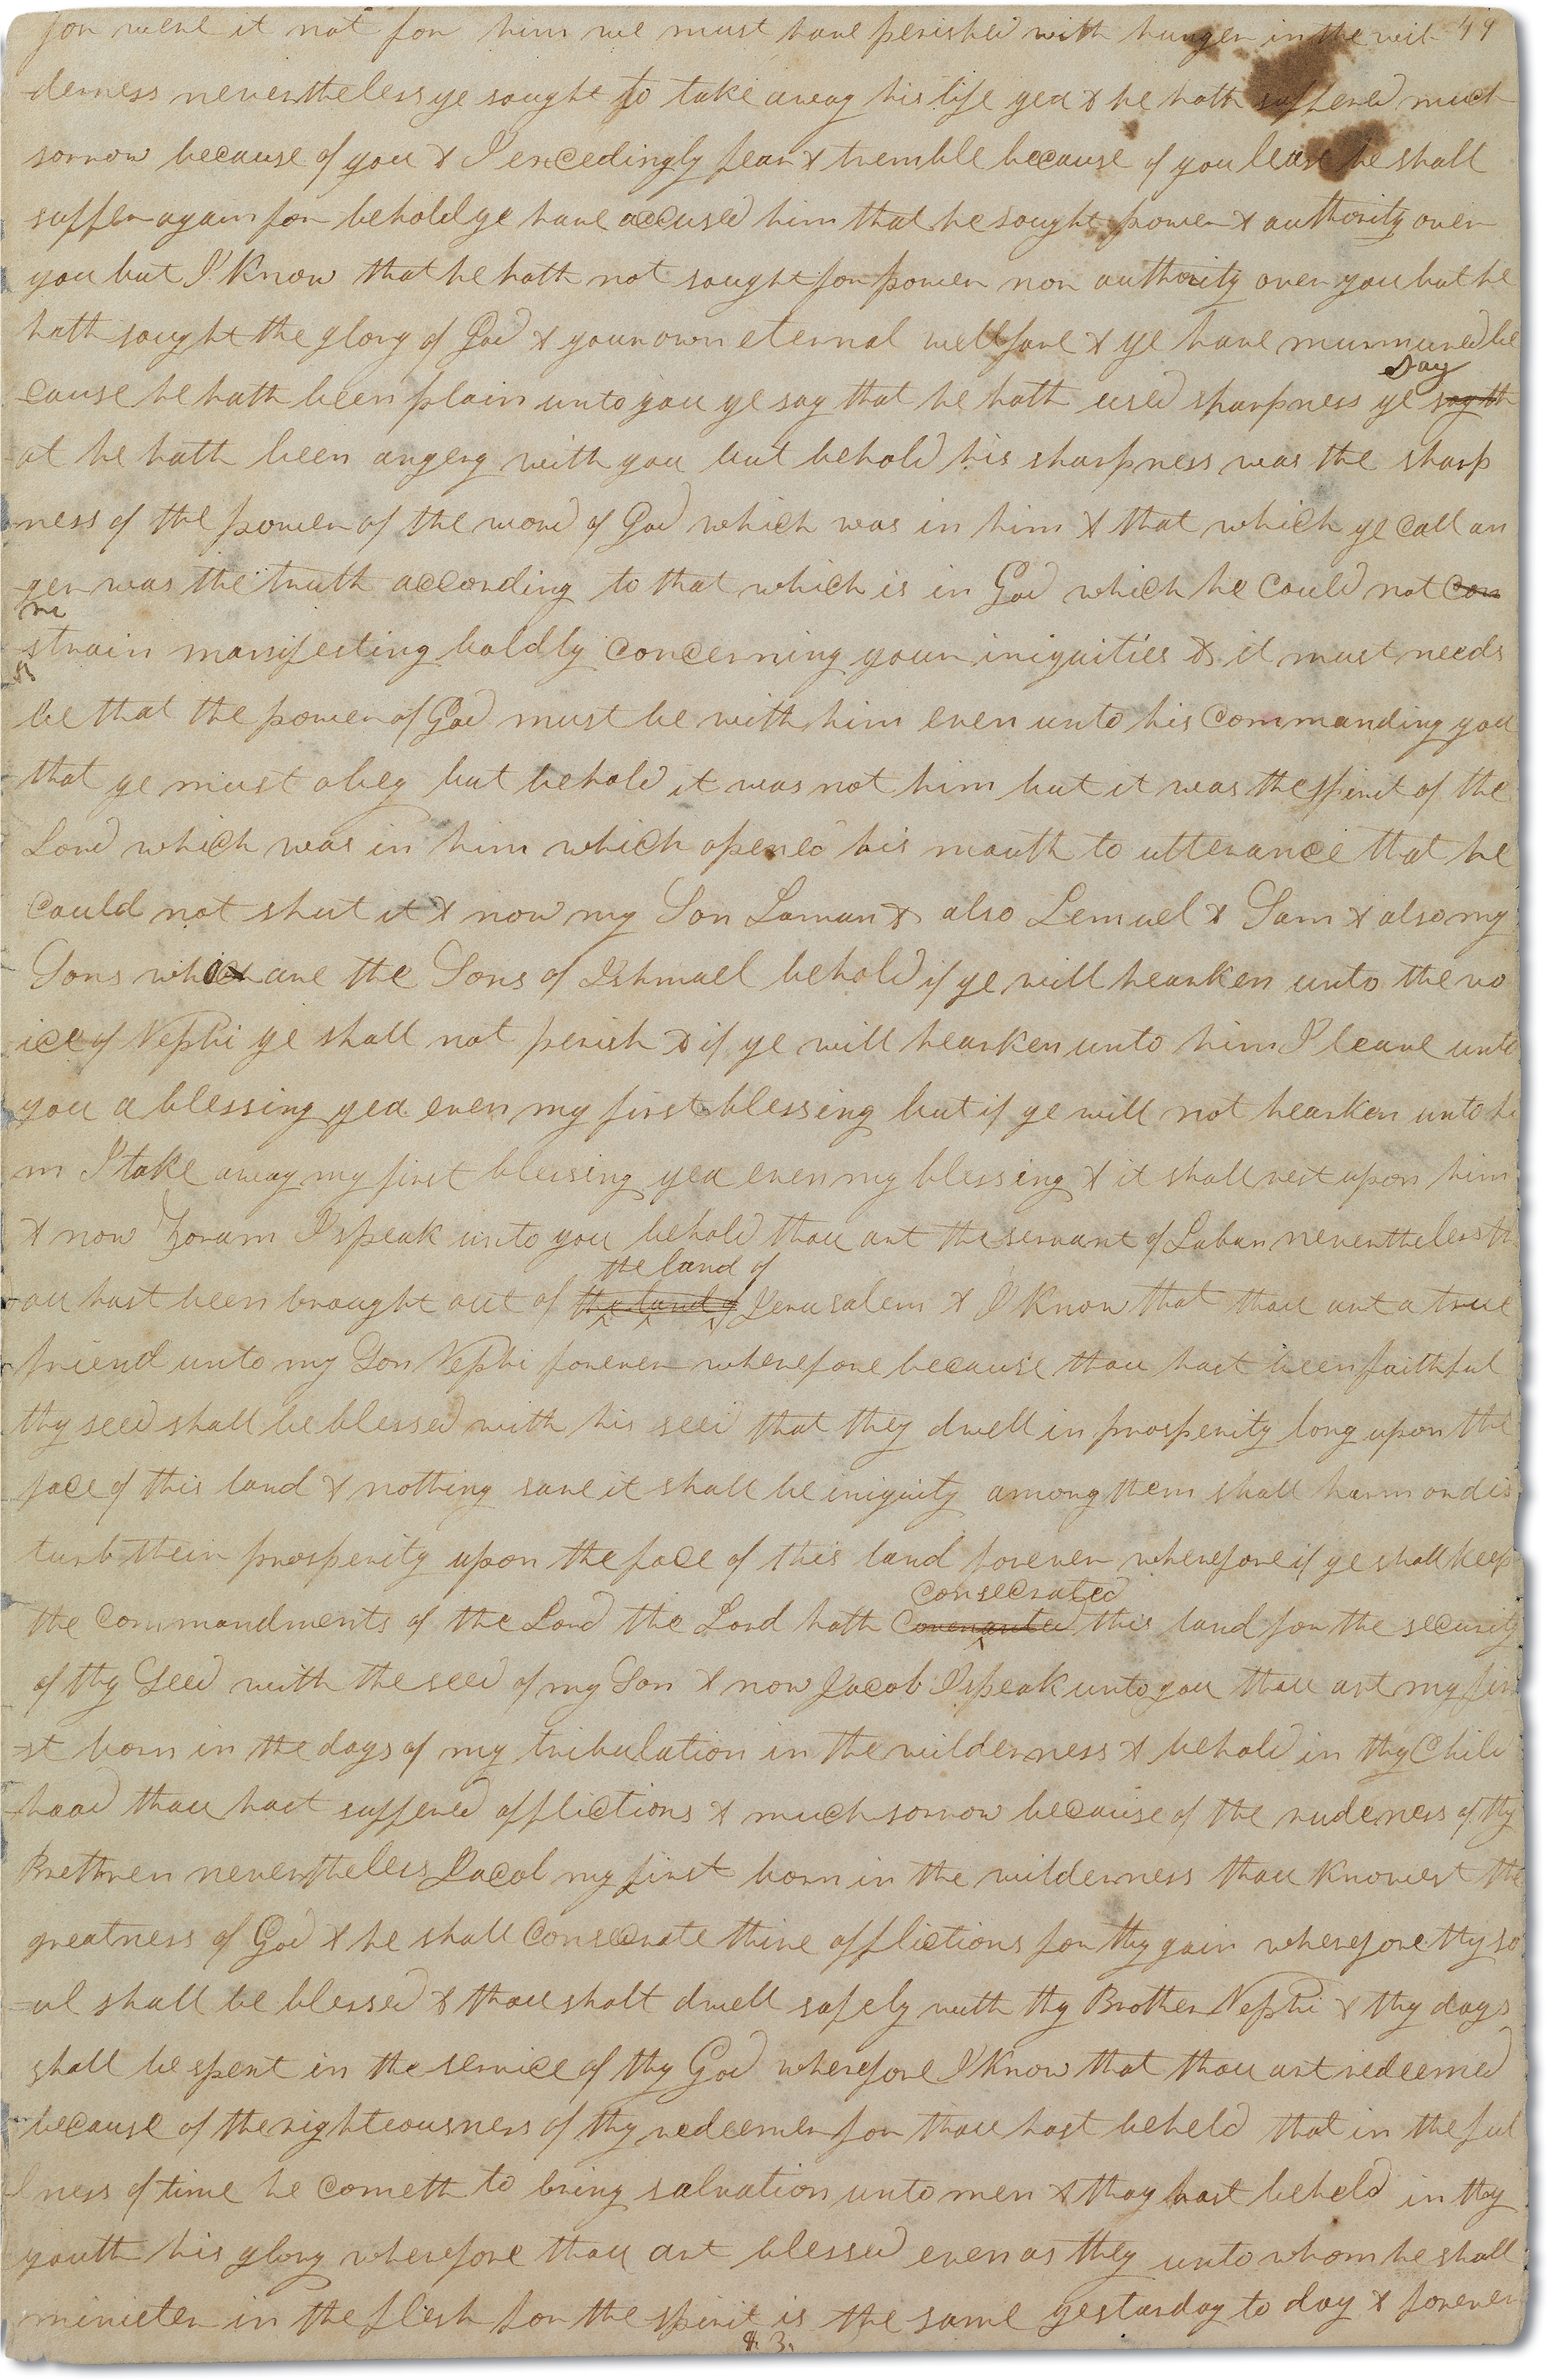 for were it not for him we must have perished with hunger in the wil- 49
derness nevertheless ye sought to take away his life yea & he hath suffered much
sorrow because of you & I excedingly fear & tremble because of you lest he shall
suffer again for behold ye have accused him that he sought power & authority over
you but I know that he hath not sought for power nor authority over you but he
hath sought the glory of God & your own eternal wellfare & ye have murmured be
Say
cause he hath been plain unto you ye say that he hath used sharpness ye say th
at he hath been angery with you but behold his sharpness was the sharp
ness of the power of the word of God which was in him & that which ye call an
ger was the truth according to that which is in God which he could not con
re
strain manifesting boldly concerning your iniquities & it must needs
be that the power of God must be with him even unto his commanding you
that ye must obey but behold it was not him but it was the spirit of the
Lord which was in him which opened his mouth to utterance that he
could not shut it & now my Son Laman & also Lemuel & Sam & also my
Sons which are the Sons of Ishmael behold if ye will hearken unto the vo
ice of Nephi ye shall not perish & if ye will hearken unto him I leave unto
you a blessing yea even my first blessing but if ye will not hearken unto hi
m I take away my first blessing yea even my blessing & it shall rest upon him
& now Zoram I speak unto you behold thou art the servant of Laban nevertheless th
the land of
ou hast been brought out of the land of Jerusalem & I know that thou art a true
friend unto my Son Nephi forever wherefore because thou hast been faithful
thy seed shall be blessed with his seed that they dwell in prosperity long upon the
face of this land & nothing save it shall be iniquity among them shall harm or dis
turb their prosperity upon the face of this land forever wherefore if ye shall keep
consecrated
the commandments of the Lord the Lord hath covenanted this land for the security
of thy Seed with the seed of my Son & now Jacob I speak unto you thou art my fir
st born in the days of my tribulation in the wilderness & behold in thy Child
hood thou hast suffered afflictions & much sorrow because of the rudeness of thy
Brethren nevertheless Jacob my first born in the wilderness thou knowest the
greatness of God & he shall consecrate thine afflictions for thy gain wherefore thy so
ul shall be blessed & thou shalt dwell safely with thy Brother Nephi & thy days
shall be spent in the service of thy God wherefore I know that thou art redeemed
because of the righteousness of thy redeemer for thou hast beheld that in the ful
lness of time he cometh to bring salvation unto men & thou hast beheld in thy
youth his glory wherefore thou art blessed even as they unto whom he shall
minister in the flesh for the spirit is the same yesterday to day & forever